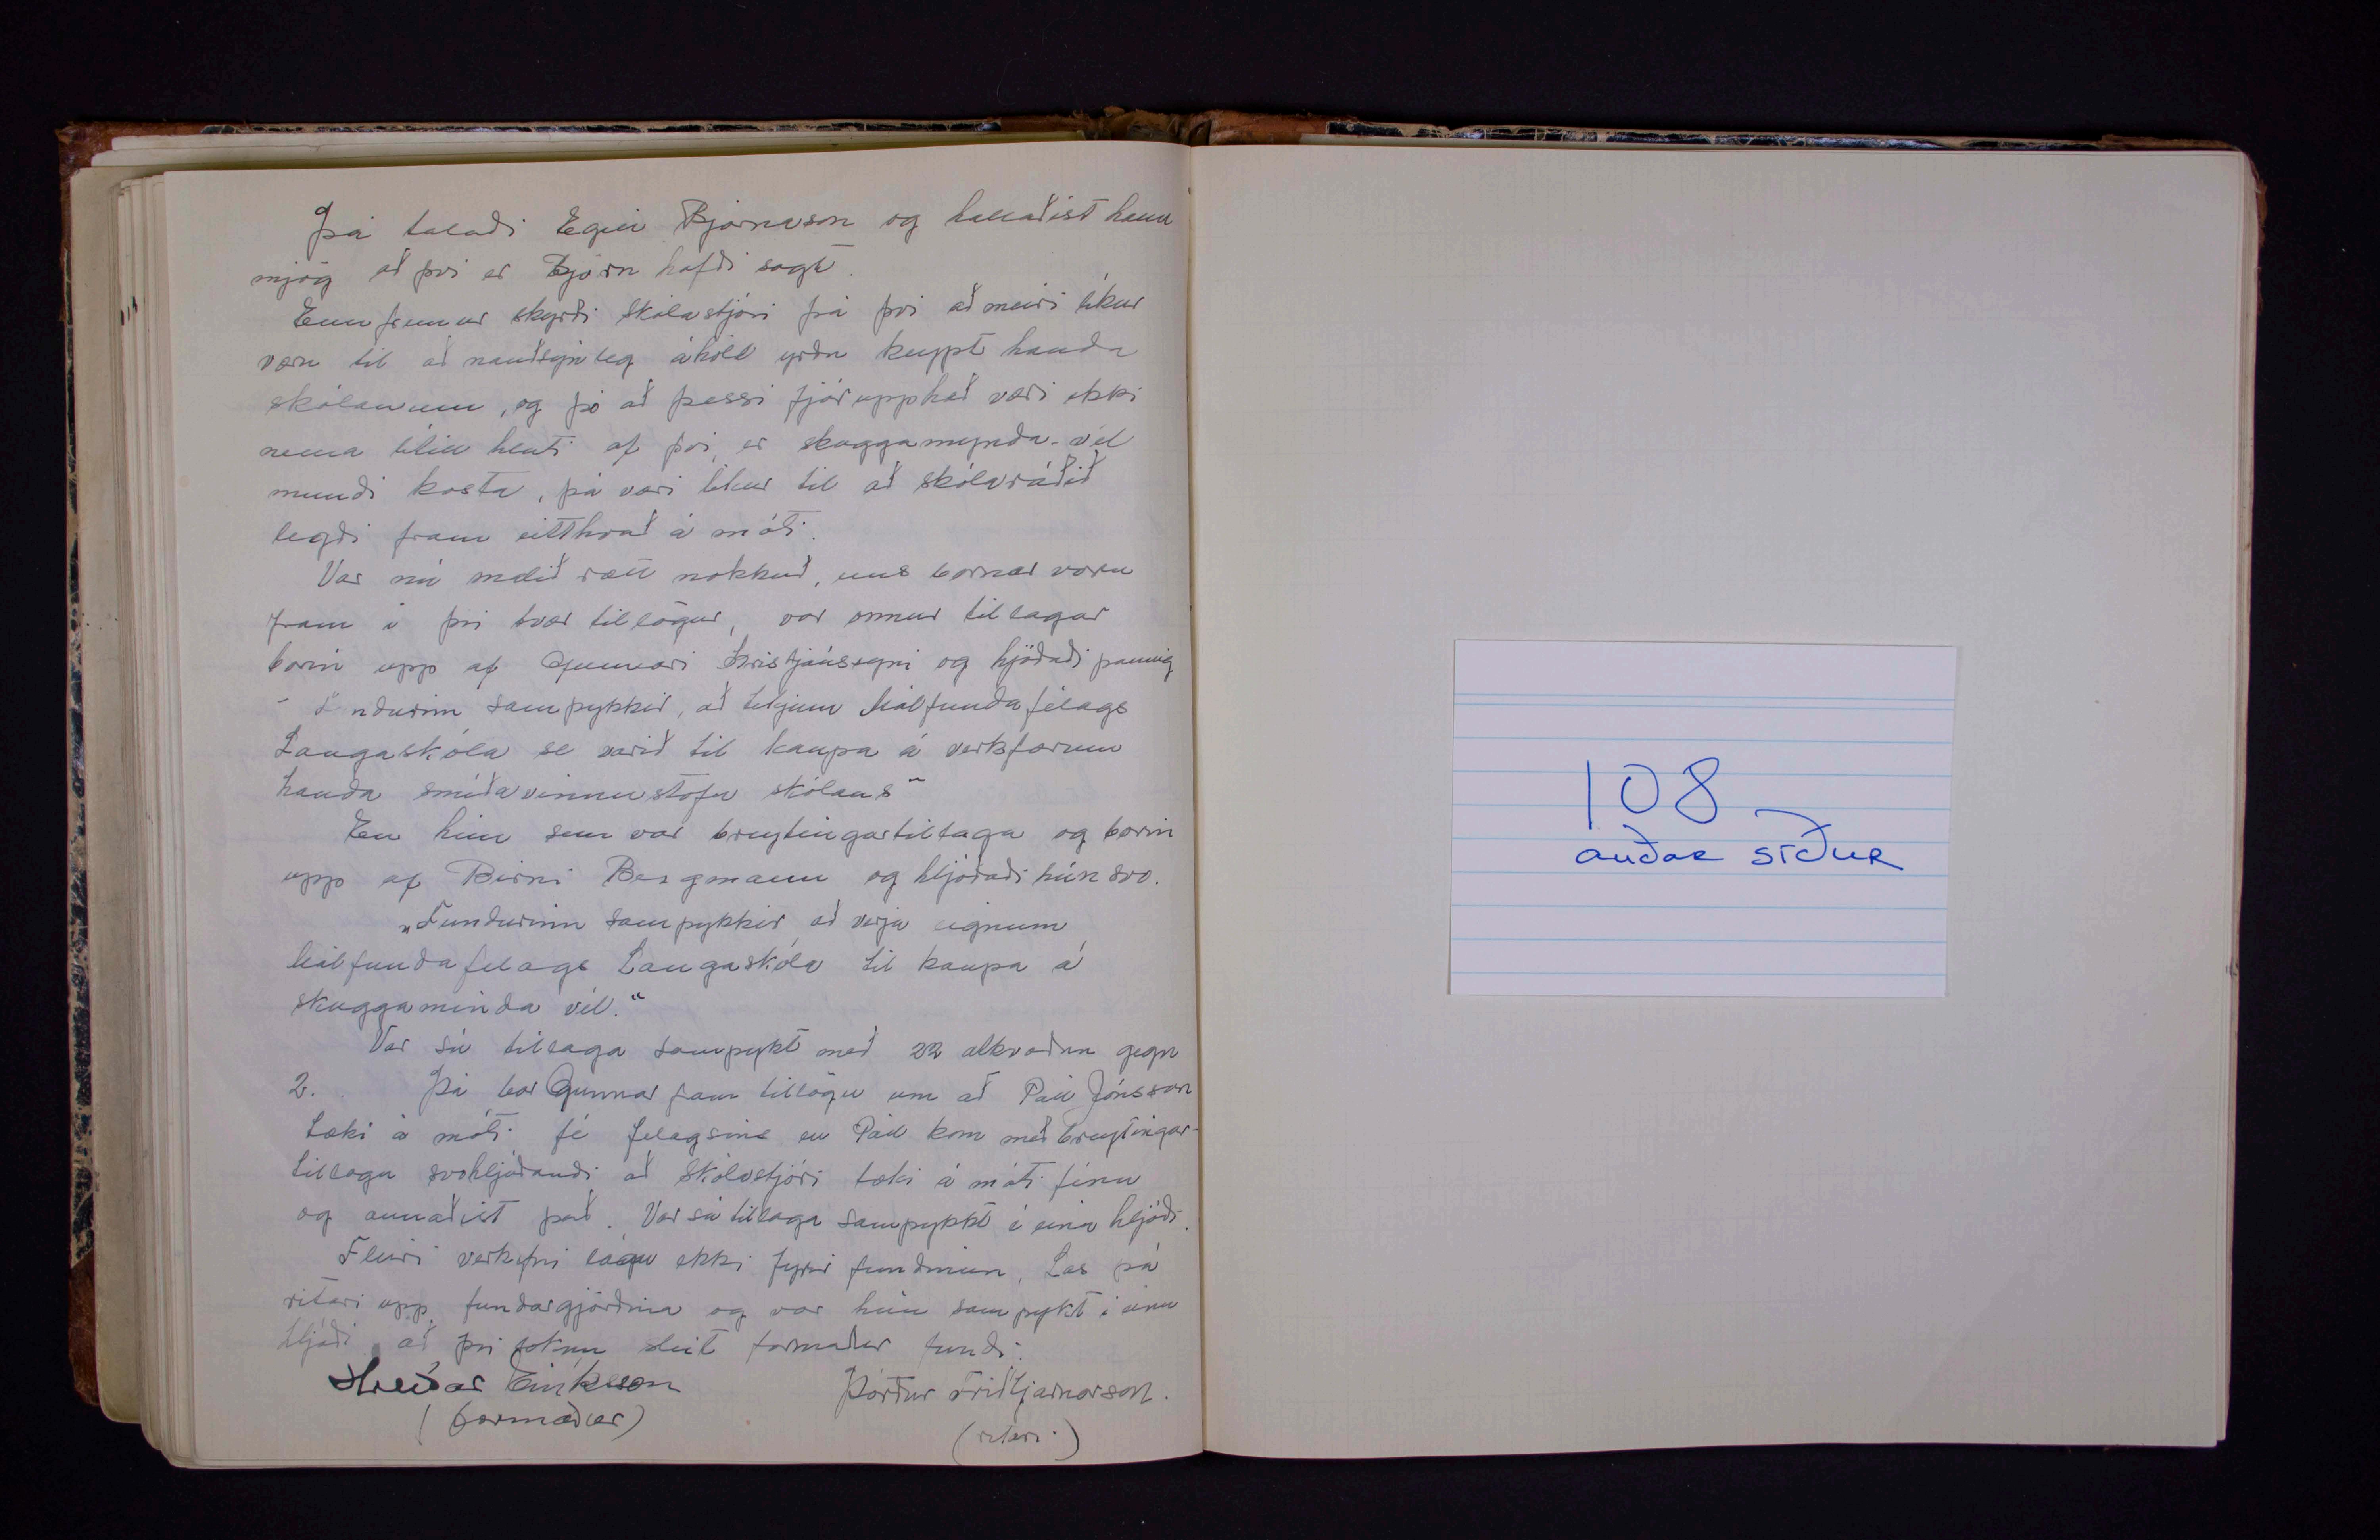 Þá talaði Egill Bjarnason og hallaðist hann
mjög að því er Björn hafði sagt.
Ennfremur skyrði skólastjóri frá því að meiri líkur
væru til að nauðsynleg áhöld yrðu keypt handa
skólanum, og þó að þessi fjárupphæð væri ekki
nema lítill hluti af því, er skuggamynda-vél
mundi kosta, þá væri líkur til að skólaráðið
legði fram eitthvað á móti.
Var nú málið rætt nokkuð, uns bornar voru
fram í því tvær tillögur, var önnur tillagan
borin upp af Gunnari Kristjánssyni og hjóðaði þannig
"Fundurinn samþykkir, að tekjum Málfundafélags
Laugaskóla sé varið til kaupa á verkfærum
handa smíðavinnustofu skólans"
En hin sem var breytingartillaga og borin
upp af Birni Bergmann og hljóðaði hún svo.
„Fundurinn samþykkir að verja eignum
Málfundafélags Laugaskóla til kaupa á
skuggaminda vél."
Var sú tillaga samþykt með 22 atkvæðum gegn
2. Þá bar Gunnar fram tillögu um að Páll Jónsson
tæki á móti fé félagsins en Páll kom með breytingar-
tillögu svohljóðandi að Skólastjóri tæki á móti fénu
og annaðist það. Var sú tillaga samþykkt í einu hljóði.
Fleiri verkefni lágu ekki fyrir fundinum, Las þá
ritari upp fundargjörðina og var hún samþykt í einu
hljóði að því loknu sleit formaður fundi.
Hreiðar Eiríksson Þórður Friðbjarnarson.
(formaður) (ritari.)
108
auðar síður